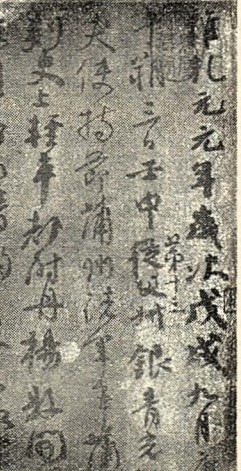 維乾元元年歲次戊戌九月
午朔三日壬申第十三從父叔銀青光
夫使持節蒲州諸軍事蒲
刺史上輕車都尉丹楊縣開